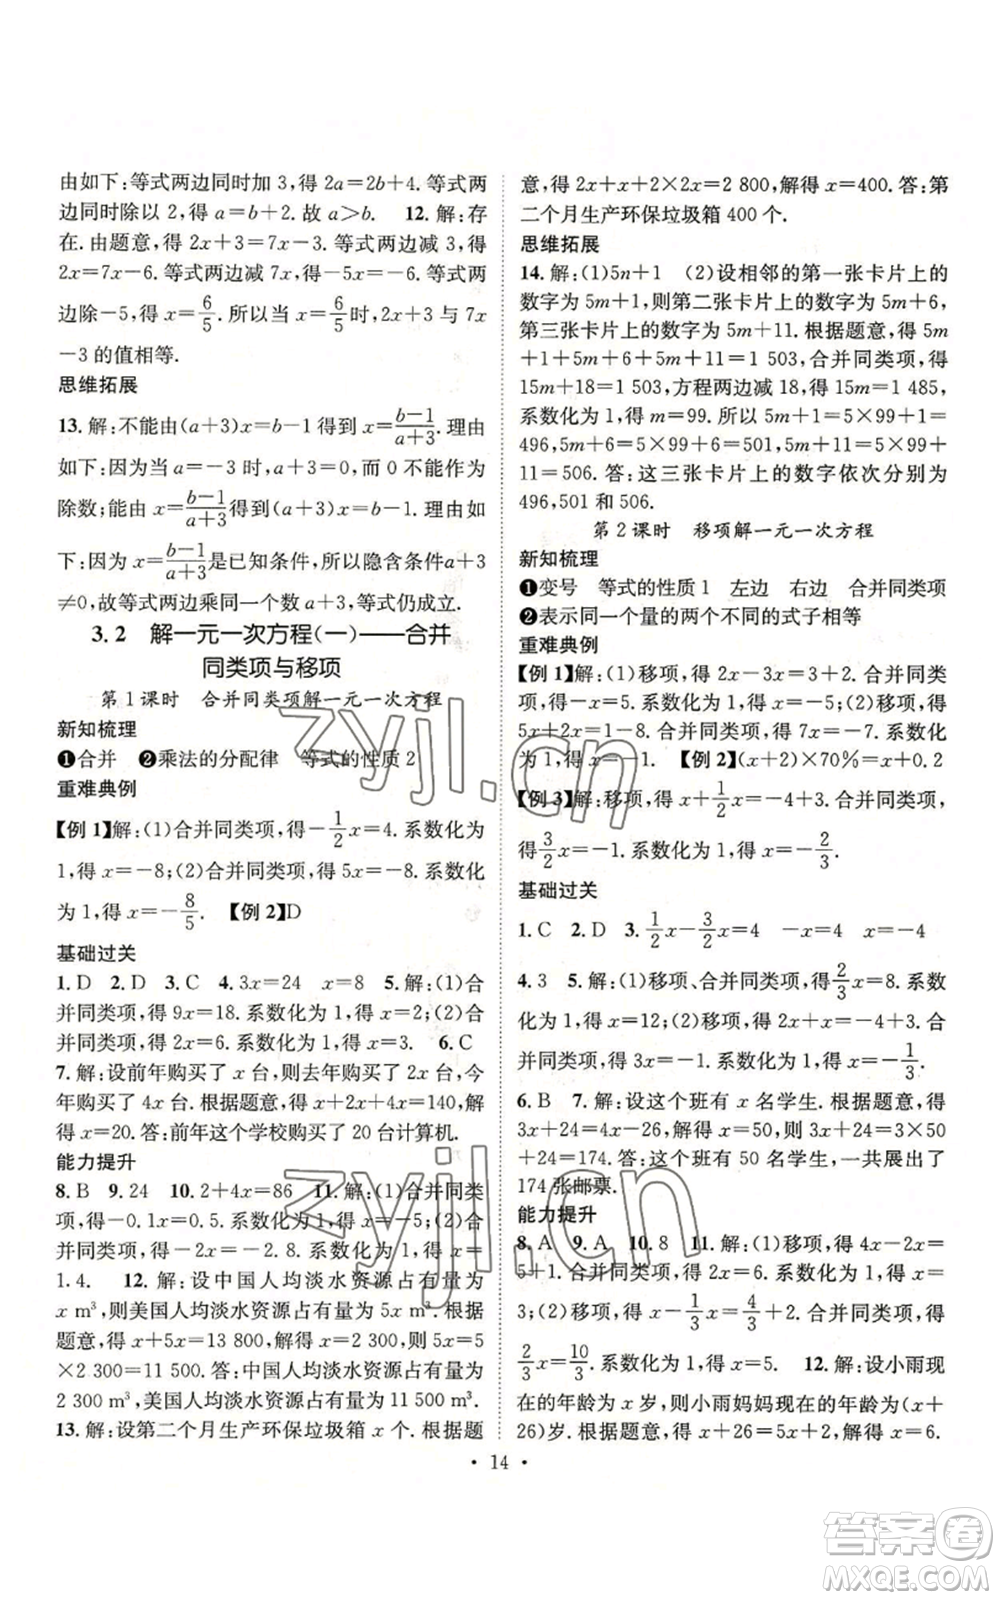 由如下:等式两边同时加 3,得 2a=2b+4. 等式两
边同时除以 2,得 a=b+2. 故 a>b. 12. 解:存
在. 由题意,得 2x+3=7x-3. 等式两边减 3,得
2x=7x-6. 等式两边减 7x,得-5x=-6. 等式两
边除-5,得 x=6/5. 所以当 x=6/5时,2x+3 与 7x
-3 的值相等.
思维拓展
13. 解:不能由(a+3)x=b-1 得到 x=(b-1)/(a+3). 理由
如下:因为当 a=-3 时,a+3=0,而 0 不能作为
除数;能由 x=(b-1)/(a+3)得到(a+3)x=b-1. 理由如
下:因为 x=(b-1)/(a+3)是已知条件,所以隐含条件a+3
≠0,故等式两边乘同一个数 a+3,等式仍成立.
3.2 解一元一次方程(一)——合并
同类项与移项
第 1 课时 合并同类项解一元一次方程
新知梳理
❶合并 ❷乘法的分配律 等式的性质 2
重难典例
【例 1】解:(1)合并同类项,得-1/2x=4. 系数化为
1,得 x=-8;(2)合并同类项,得 5x=-8. 系数化
为 1,得 x=-8/5. 【例 2】D
基础过关
1. D 2. D 3. C 4. 3x=24 x=8 5. 解:(1)合
并同类项,得 9x=18. 系数化为 1,得 x=2;(2)合
并同类项,得 2x=6. 系数化为 1,得 x=3. 6. C
7. 解:设前年购买了 x 台,则去年购买了 2x 台,今
年购买了 4x 台. 根据题意,得 x+2x+4x=140,解
得 x=20. 答:前年这个学校购买了 20 台计算机.
能力提升
8. B 9. 24 10. 2+4x=86 11. 解:(1)合并同类
项,得-0.1x=0.5. 系数化为 1,得 x=-5;(2)合
并同类项,得-2x=-2.8. 系数化为 1,得 x=
1.4. 12. 解:设中国人均淡水资源占有量为
x m³,则美国人均淡水资源占有量为 5x m³. 根据
题意,得 x+5x=13 800,解得 x=2 300,则 5x=5
×2 300=11 500. 答:中国人均淡水资源占有量为
2 300 m³,美国人均淡水资源占有量为 11 500 m³.
13. 解:设第二个月生产环保垃圾箱 x 个. 根据题
意,得 2x+x+2×2x=2 800,解得 x=400. 答:第
二个月生产环保垃圾箱 400 个.
思维拓展
14. 解:(1)5n+1 (2)设相邻的第一张卡片上的
数字为 5m+1,则第二张卡片上的数字为 5m+6,
第三张卡片上的数字为 5m+11. 根据题意,得 5m
+1+5m+6+5m+11=1 503,合并同类项,得
15m+18=1 503,方程两边减 18,得 15m=1 485,
系数化为 1,得 m=99. 所以 5m+1=5×99+1=
496,5m+6=5×99+6=501,5m+11=5×99+
11=506. 答:这三张卡片上的数字依次分别为
496,501 和 506.
第 2 课时 移项解一元一次方程
新知梳理
❶变号 等式的性质 1 左边 右边 合并同类项
❷表示同一个量的两个不同的式子相等
重难典例
【例 1】解:(1)移项,得 4x-3x=3+2. 合并同类
项,得 x=5;(2)移项,得 5x+2x=-10+3. 合并同类项,得 7x=-7. 系数化
为 1,得 x=-1. 【例 2】(x+2)×70%=x+0.2
【例 3】解:移项,得 x+1/2x=-4+3. 合并同类项,
得3/2x=-1. 系数化为 1,得 x=-2/3.
基础过关
1. C 2. D 3. 1/2x-3/2x=4 -x=4 x=-4
4. 3 5. 解:(1)移项、合并同类项,得2/3x=8. 系数
化为 1,得 x=12;(2)移项,得 2x+x=-4+3. 合
并同类项,得 3x=-1. 系数化为 1,得 x=-1/3.
6. B 7. 解:设这个班有 x 名学生. 根据题意,得
3x+24=4x-26,解得 x=50,则 3x+24=3×50
+24=174. 答:这个班有 50 名学生,一共展出了
174 张邮票.
能力提升
8. A 9. A 10. 8 11. 解:(1)移项,得 4x-2x=
5+1. 合并同类项,得 2x=6. 系数化为 1,得 x=
3;(2)移项,得 x-1/3x=4/3+2. 合并同类项,得
2/3x=10/3. 系数化为 1,得 x=5. 12. 解:设小雨现
在的年龄为 x 岁,则小雨妈妈现在的年龄为(x+
26)岁. 根据题意,得 x+x+26=36,解得 x=
· 14 ·
zyjl.cn
zyjl.cn
答案圈
MXQE.COM